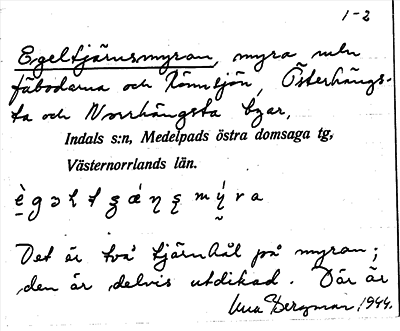 1-2
Egeltjärnsmyran, myra mln
fäbodarna och Lönnsjön, Österhångs-
ta och Norrhångsta byar,
Indals s:n, Medelpads östra domsaga tg,
Västernorrlands län.
Det är två tjärnhål på myran;
den är delvis utdikad. Där är
Bergman, 1944.